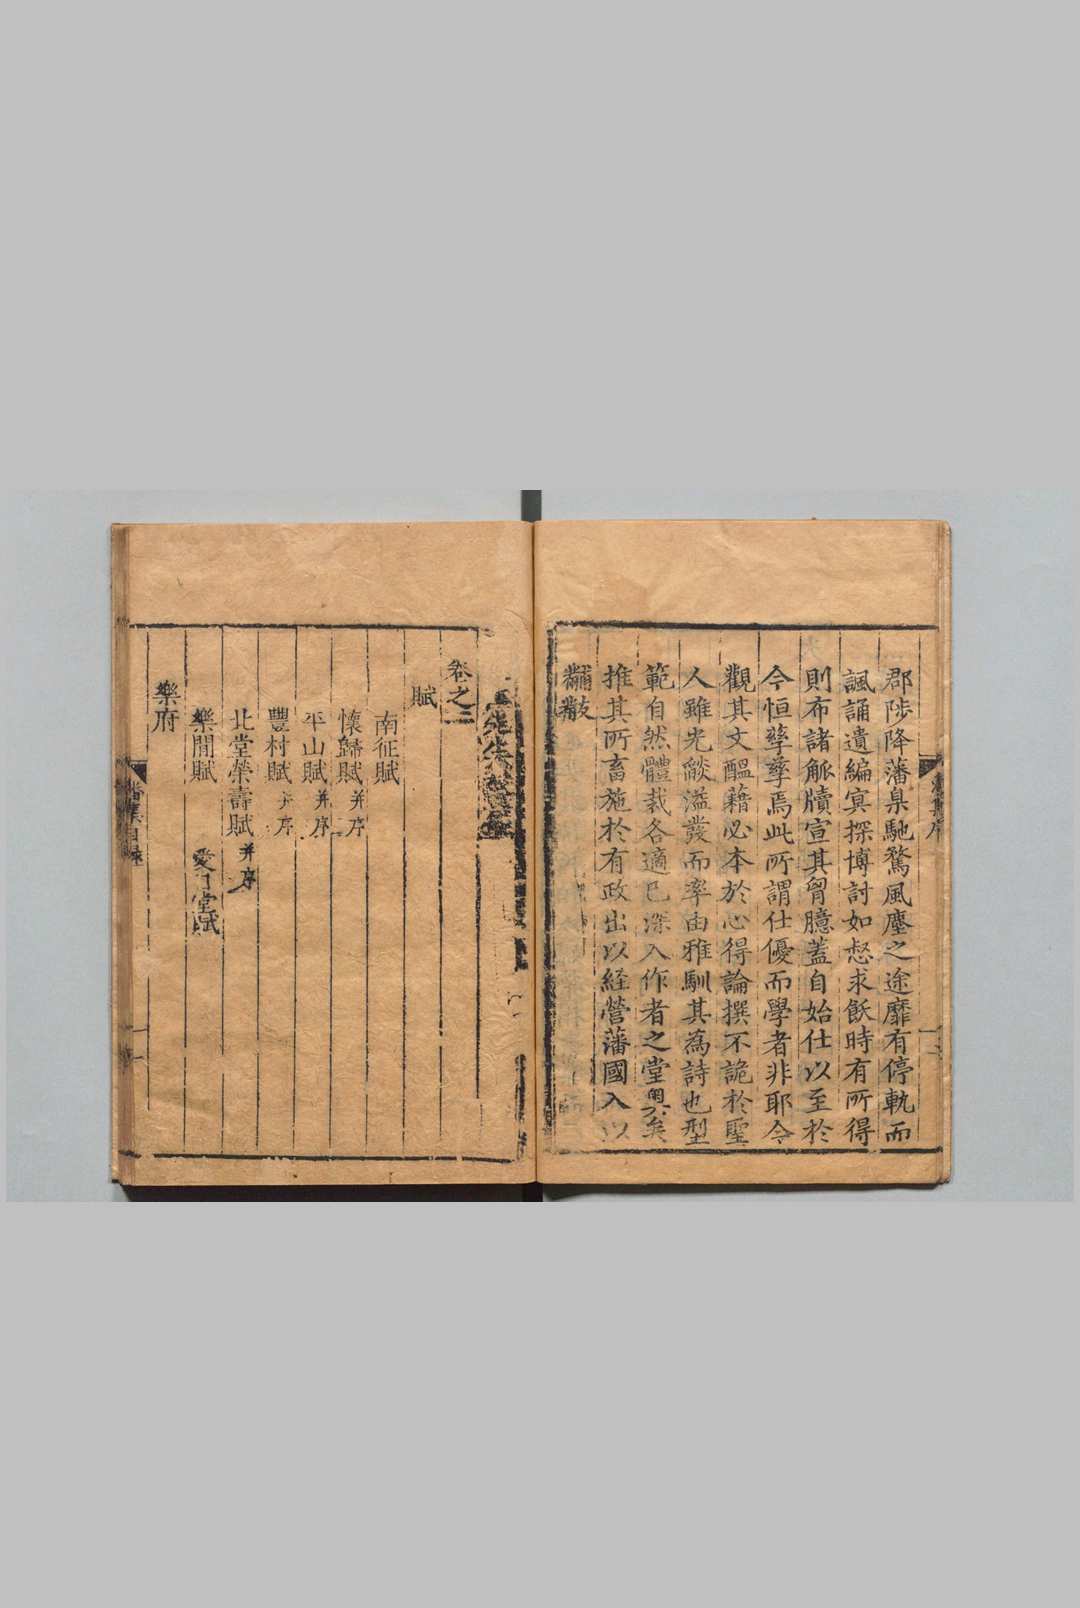 郡陟降藩臬馳騖風塵之途靡有停軌而
諷誦遺編冥探博討如惄求飫時有所得
則布諸觚牘宣其胷臆蓋自始仕以至於
今恒孳孳焉此所謂仕優而學者非耶今
觀其文醞藉必本於心得論撰不詭於聖
人雖光燄溢發而率由雅馴其為詩也型
範自然體裁各適已深入作者之堂奧矣
推其所畜施於有政出以經營藩國入以
黼黻
卷之二
賦
南征賦
懷歸賦并序
平山賦并序
豐村賦并序
北堂榮壽賦并序
樂閒賦
愛日堂賦
樂府